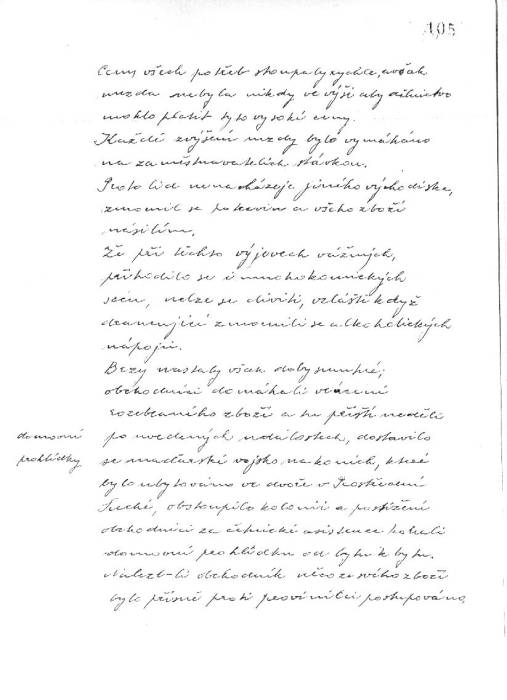 105
Ceny všech potřeb stoupaly rychle, avšak
mzda nebyla nikdy ve výši aby dělnictvo
mohlo platit tyto vysoké ceny.
Každé zvýšení mzdy bylo vymáháno
na zaměstnavatelích stávkou.
Proto lid nenacházeje jiného východiska,
zmocnil se potravin a všeho zboží
násilím.
Že při těchto výjevech vážných,
přihodilo se i mnoho komických
scén, nelze se diviti, zvláště když
dravenější zmocnili se alkoholických
nápojů.
Brzy nastaly však doby smutné;
obchodníci domáhali vrácení
rozebraného zboží a tu příští neděli
domovní
po uvedených událostech, dostavilo
prohlídky
se maďarské vojsko na koních, které
bylo ubytováno ve dvoře v Prostřední
Suché, obstoupilo kolonii a postižení
obchodníci za četnické asistence konali
domovní prohlídku od bytu k bytu.
Nalezl-li obchodník něco ze svého zboží
bylo přísně proti provinilci postupováno.